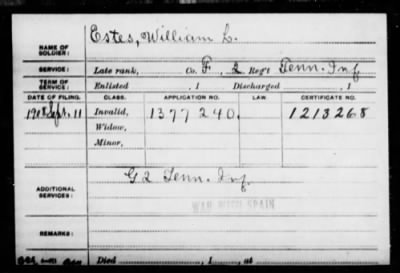 Estes, William L.
NAME OF SOLDIER:
SERVICE: Late rank, Co. F, 2 Reg't Tenn. Inf
TERM OF SERVICE: Enlisted , 1 Discharged , 1
DATE OF FILING. CLASS. APPLICATION NO. LAW. CERTIFICATE NO.
Sept. 11 Invalid, 1377240. 1213268
Widow,
Minor,
ADDITIONAL SERVICES: G 2 Tenn. Inf.
WAR WITH SPAIN
REMARKS:
Died , 1 , at